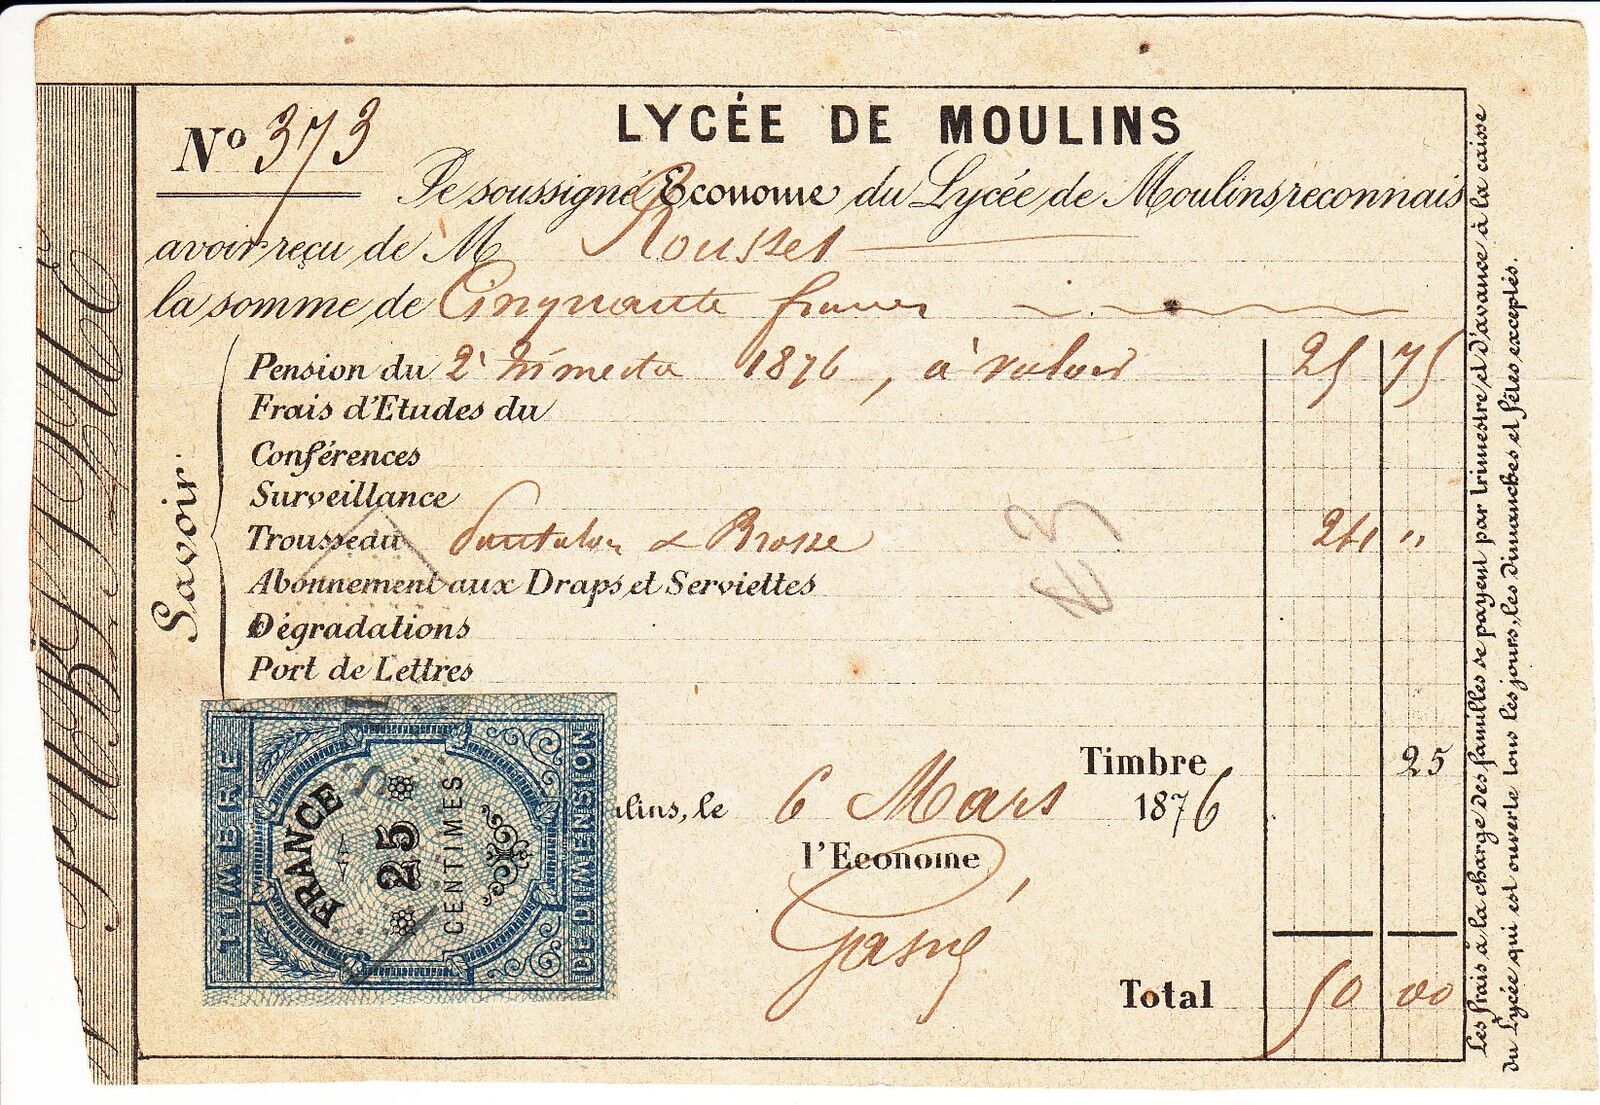 N° 373
LYCÉE DE MOULINS
Je soussigné Econome du Lycée de Moulins reconnais
avoir reçu de M Rousset
la somme de Cinquante francs
Savoir:
Pension du 2e trimestre 1876, à valoir 25 75
Frais d'Etudes du
Conférences
Surveillance
Trousseau Pantalon & Brosse 24 "
Abonnement aux Draps et Serviettes
Dégradations
Port de Lettres
Timbre 25
lins, le 6 Mars 1876
l'Econome
Total 50 00
TIMBRE
FRANCE
25
CENTIMES
DE DIMENSION
Les frais à la charge des familles se payent par trimestre et d'avance à la caisse
du Lycée qui est ouverte tous les jours, les dimanches et fêtes exceptés.